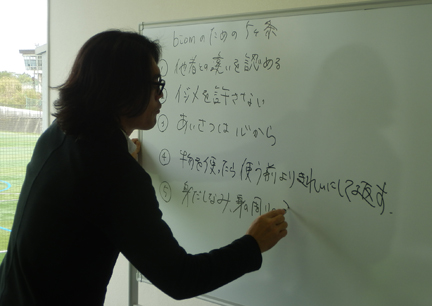 biomのための5ヶ条
① 他者との違いを認める
② イジメを許さない
③ あいさつは心から
④ 物を使ったら使う前よりきれいにして返す.
⑤ 身だしなみ、身の周り